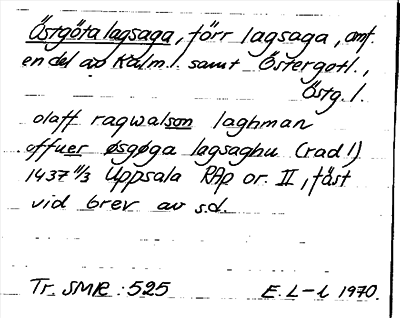 Östgöta lagsaga, förr lagsaga, omf.
en del av Kalm. l. samt Östergötl.,
Östg. l.
olaff raqwalson laghman
offuer øsgøga lagsaghu (rad 1)
1437 11/3 Uppsala RAp or. II, fäst
vid brev av s.d.
Tr. SMR : 525 E. L-l 1970.